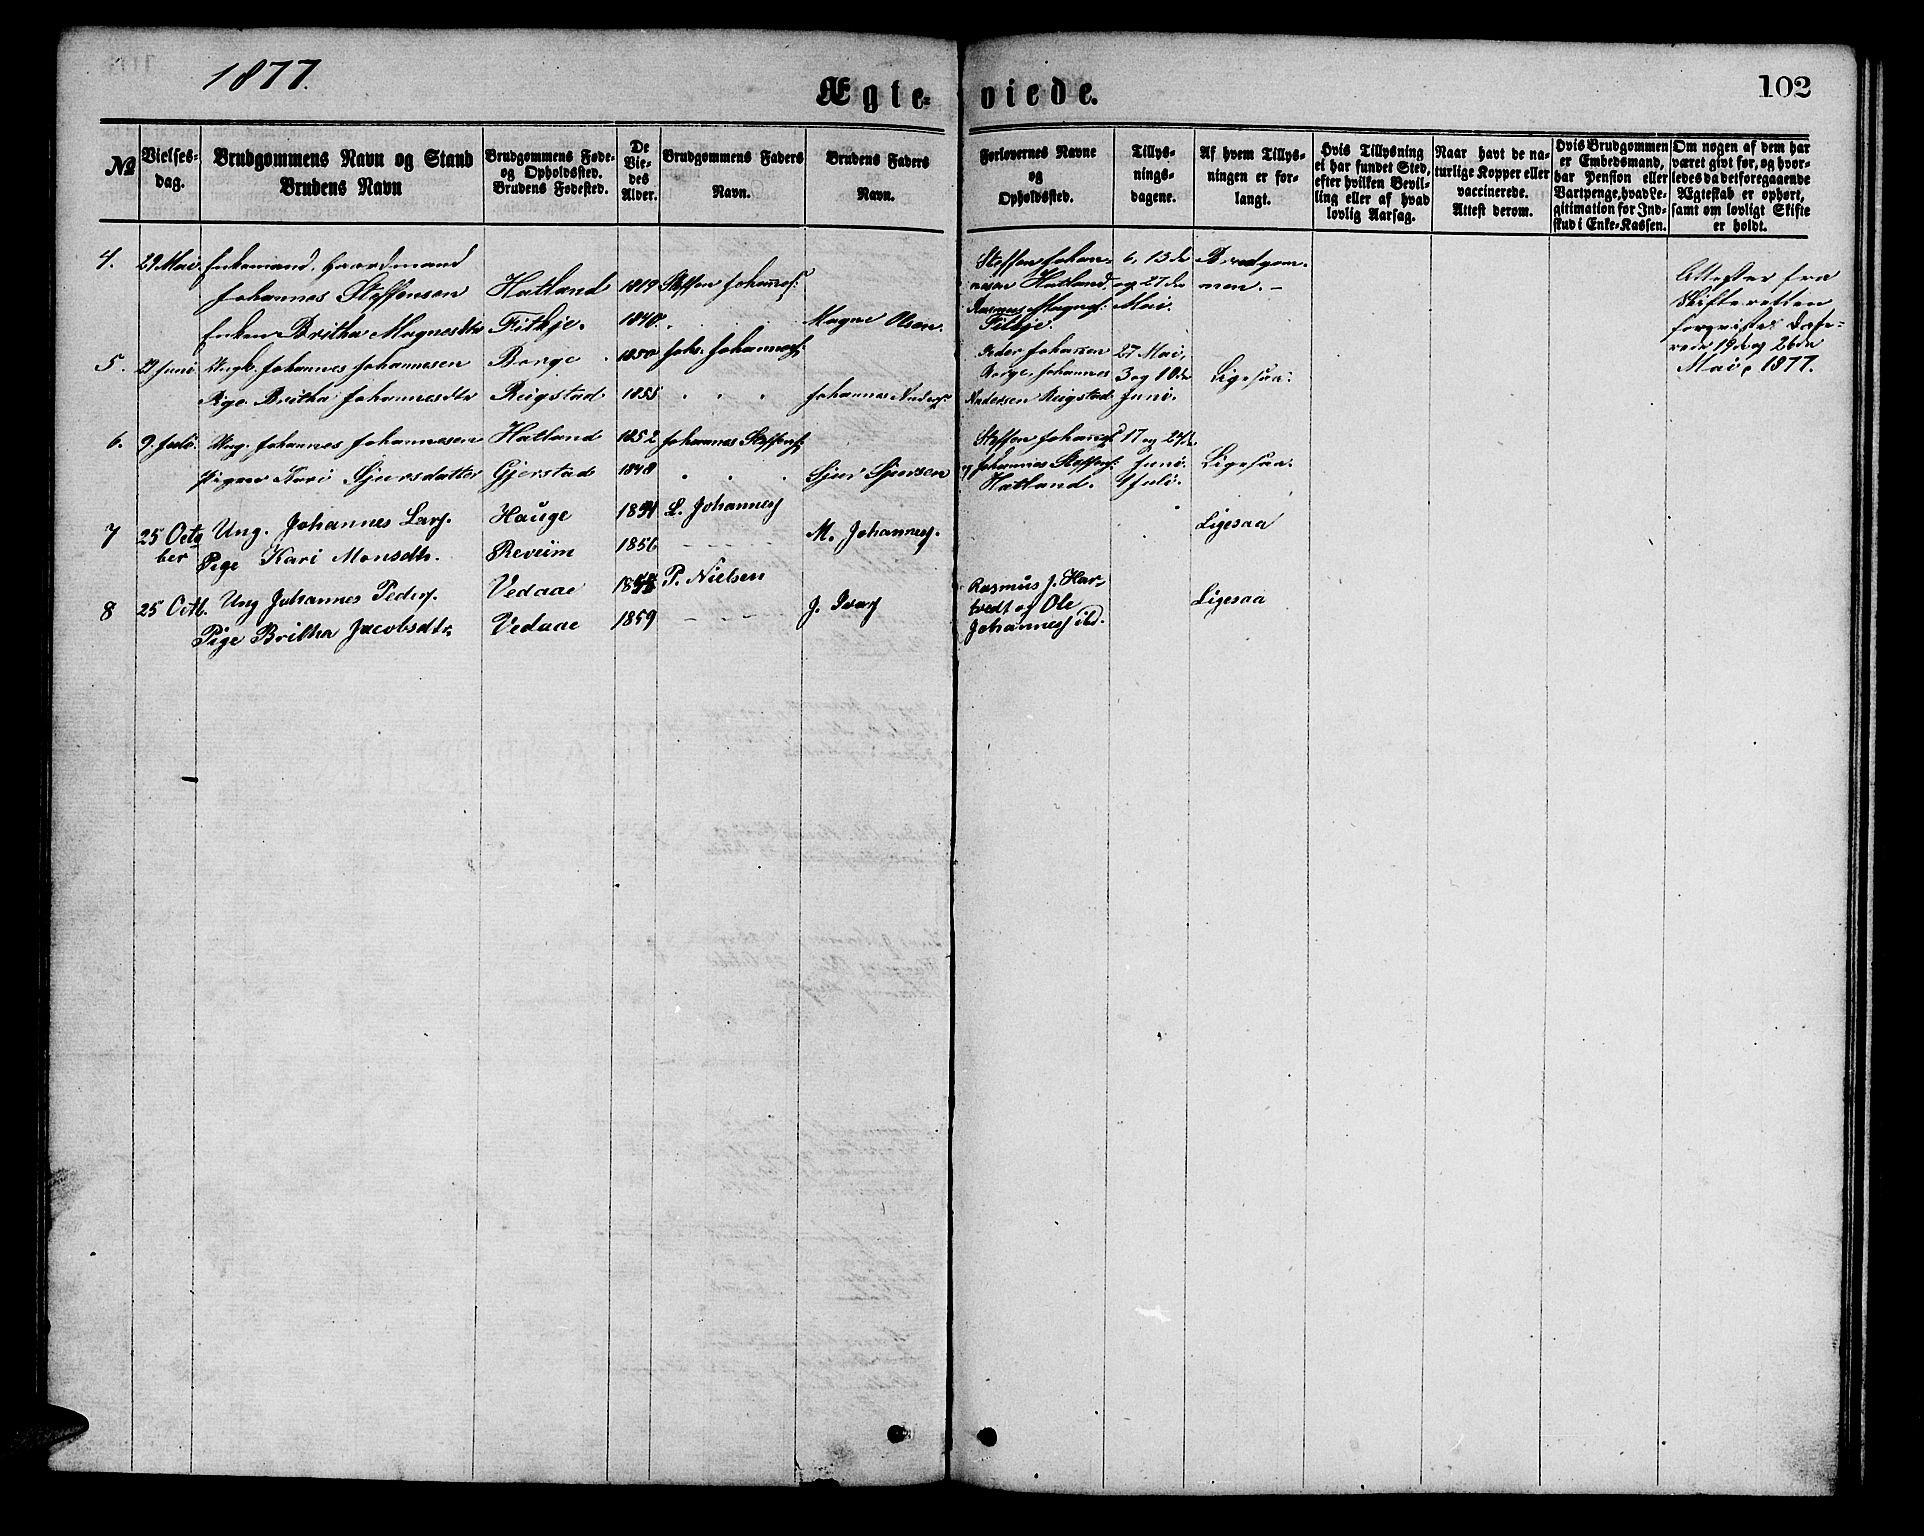 1877.
Ægte-
viede.
102
No
Vielses-
dag.
Brudgommens Navn og Stand
Brudens Navn
Brudgommens Føde-
og Opholdssted.
Brudens Fødested.
De
Vie-
des
Alder.
Brudgommens Faders
Navn.
Brudens Faders
Navn.
Forlovernes Navne
og
Opholdssted.
Tillys-
nings-
dagene.
Af hvem Tillys-
ningen er for-
langt.
Hvis Tillysning
ei har fundet Sted,
efter hvilken Bevil-
ling eller af hvad
lovlig Aarsag.
Naar havt de na-
turlige Kopper eller
vaccinerede.
Attest derom.
Hvis Brudgommen
er Embedsmand,
har Pension eller
Vartpenge, hvad Le-
gitimation for Ind-
skud i Enke-Kassen.
Om nogen af dem har
været givt før, og hvor-
ledes da det foregaaende
Ægteskab er ophørt,
samt om lovligt Skifte
er holdt.
4.
29 Mai.
Enkemand, Gaardmand
Johannes Steffensen
Enken Britha Magnesdtr
Hatland
Fitkje.
1819
1840.
Steffen Johannes:
Magne Olsen.
Steffen Johan-
nesen Hatland
Rasmus Magnes:
Fitkje.
6, 13de
og 27de
Mai.
Brudgom-
men. -
Attester fra
Skifteretten
forevister date-
rede 19de og 26de
Mai, 1877.
5.
29 Juni
Ungk. Johannes Johannesen
Pige Britha Johannesdtr
Borge
Reigstad
1850
1855
Johs. Johannes:
Johannes Anders:
Peder Johansen
Borge, Johannes
Andersen Reigstad
27 Mai,
3 og 10de
Juni.
Ligesaa.
6.
9. Juli.
Ung. Johannes Johannesen
Pigen Kari Sjursdatter
Hatland
Gjerstad
1852
1848
Johannes Steffens:
Sjur Sjursen
Steffen Johanns:
og Johannes Steffens:
Hatland.
17 og 24de
Juni.
1 Juli.
Ligesaa.
7
25 Octo
ber
Ung. Johannes Lars.
Pige Kari Monsdtr.
Hauge
Reveim
1856
L. Johannes
M. Johannes.
Ligesaa
8
25 Octb.
Ung Johannes Peders.
Pige Britha Jacobsdtr
Vedaae
Vedaae
1859
P. Nielsen
J. Ivars
Rasmus J. Har-
tvedt og Ole
Johannes ibd.
Ligesaa